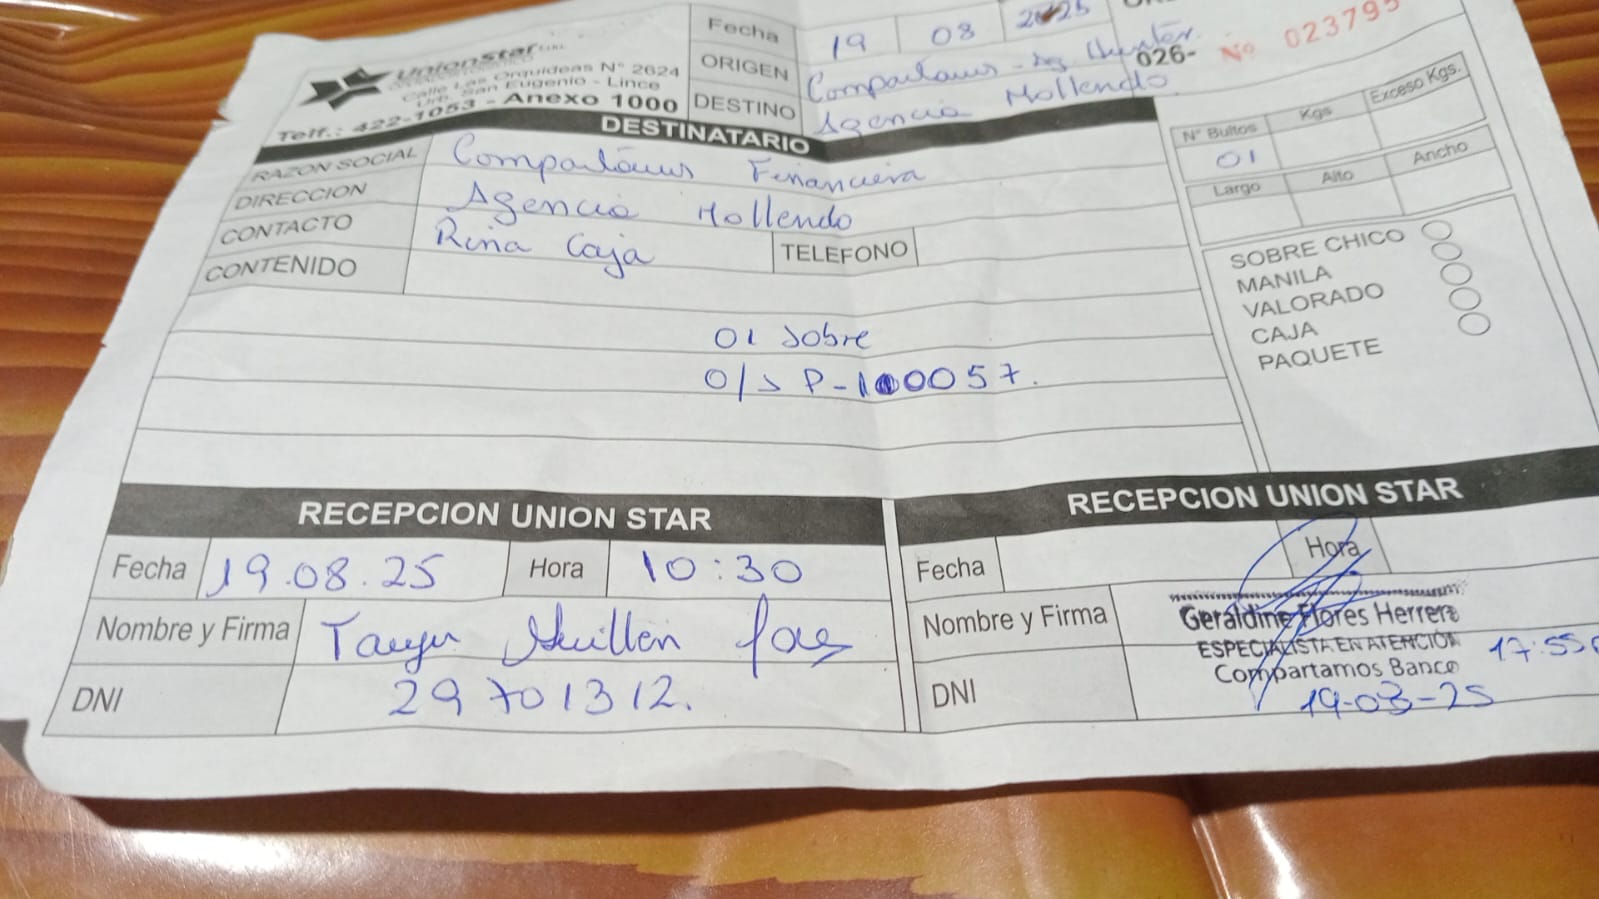 Unionstar S.R.L.
Calle Las Orquideas N° 2624
Urb. San Eugenio - Lince
Telf.: 422-1053 - Anexo 1000
Fecha 19 08 2025
ORIGEN Compartamos - Ag.
DESTINO Agencia Mollendo
026- Nº 023795
DESTINATARIO
RAZON SOCIAL Compartamos Financiera
DIRECCION Agencia Mollendo
CONTACTO Rina Caja TELEFONO
CONTENIDO
01 Sobre
O/S P-100057.
N° Bultos Kgs Exceso Kgs.
01
Largo Alto Ancho
SOBRE CHICO
MANILA
VALORADO
CAJA
PAQUETE
RECEPCION UNION STAR
Fecha 19.08.25 Hora 10:30
Nombre y Firma
DNI 29701312.
RECEPCION UNION STAR
Fecha Hora
Nombre y Firma Geraldine Flores Herrera
ESPECIALISTA EN ATENCIÓN 17:55
Compartamos Banco
DNI 19-08-25